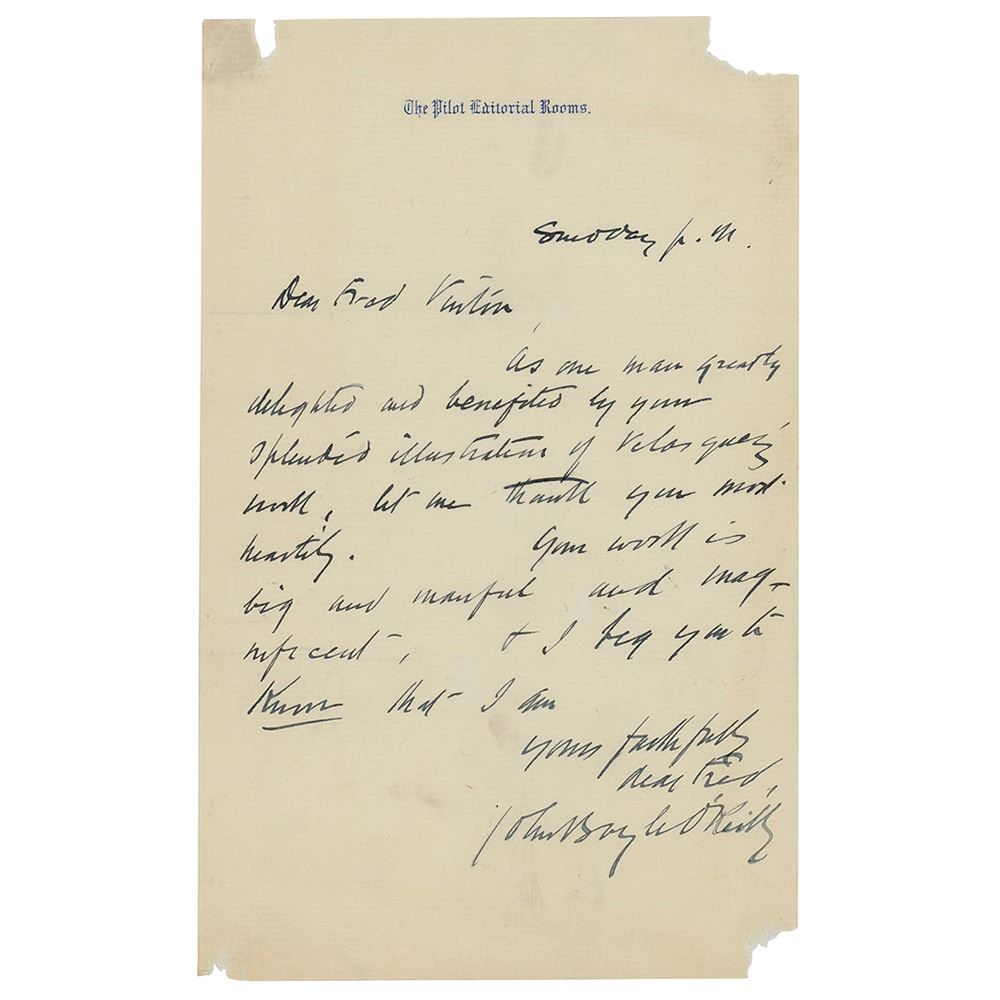 The Pilot Editorial Rooms.
Sunday p. M.
Dear Fred Vinton,
As one man greatly
delighted and benefited by your
splendid illustration of Velasquez's
work, let me thank you most
heartily. Your work is
big and manful and mag-
nificent, & I beg you to
Know that I am
yours faithfully
dear Fred,
John Boyle O'Reilly